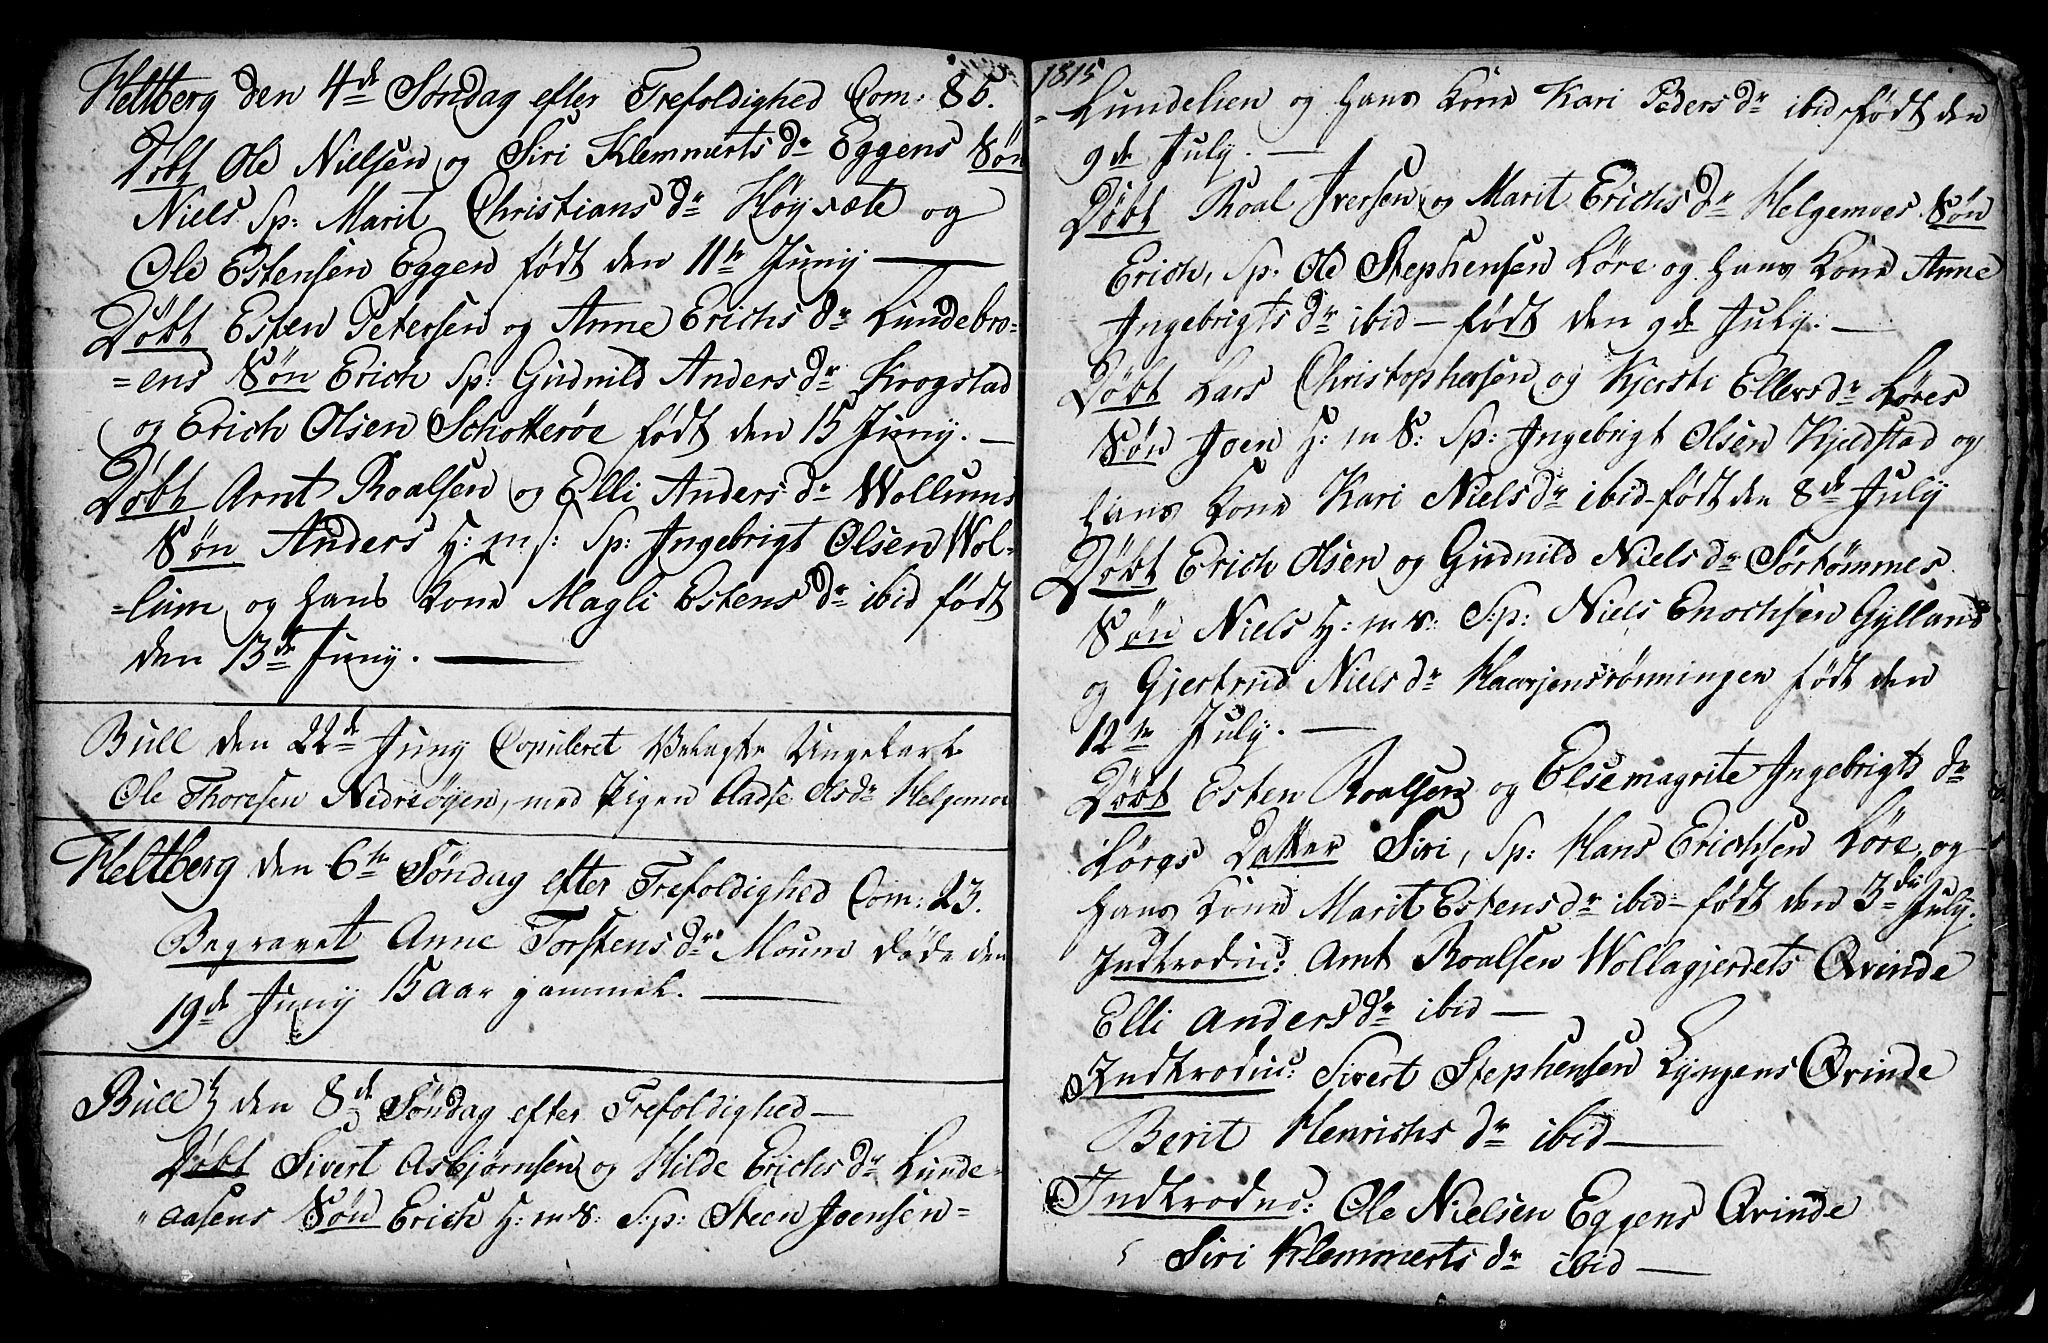 Heltberg den 4de Søndag efter Trefoldighed Com: 85.
Døbt Ole Nielsen og Siri Klemmerts dr Eggens Søn
Niels Sp: Marit Christians dr Høysæte og
Ole Estensen Eggen født den 11te Juny —
Døbt Esten Petersen og Anne Erichs dr Lundebro=
=ens Søn Erich Sp: Gudnild Anders dr Krogstad
og Erich Olsen Schotterøe født den 15 Juny. —
Døbt Arnt Roalsen og Elli Anders dr Wollums
Søn Anders H: m S: Sp: Ingebrigt Olsen Wol=
=lum og hans Kone Magli Estens dr ibid født
den 13de Juny. —
Bull den 22de Juny Copuleret Ungekarl
Ole Thoresen Nedreøyen, med Pigen Aadse Olsdr Helgemoe
Heltberg den 6te Søndag efter Trefoldighed Com: 23.
Begravet Anne Torstens dr Moum døde den
19de Juny 15 aar gammel. —
Bull den 8de Søndag efter Trefoldighed —
Døbt Sivert Asbjørnsen og Hilde Erichs dr Lunde=
aasens Søn Erich H: m S: Sp: Steen Joensen=
1815
=Lundelien og hans Kone Kari Peders dr ibid født den
9de July. —
Døbt Roal Iversen og Marit Erichs dr Helgemoes Søn
Erich, Sp: Ole Stephensen Løre og hans Kone Anne
Ingebrigts dr ibid — født den 9de July. —
Døbt Lars Christophersen og Kjersti Ellevs dr Løres
Søn Joen H: m S: Sp: Ingebrigt Olsen Kjeldstad og
hans Kone Kari Niels dr ibid — født den 8de July
Døbt Erich Olsen og Gudnild Niels dr Sørtømmes
Søn Niels H: m S: Sp: Niels Enochsen Gylland
og Gjertrud Niels dr Haarjensrønningen født den
12te July. —
Døbt Esten Roalsen og Elsemagrite Ingebrigts dr
Løres Datter Siri, Sp: Hans Erichsen Løre og
hans Kone Marit Estens dr ibid — født den 3die July.
Indtroduc: Arnt Roalsen Wollagjerdets Qvinde
Elli Anders dr ibid —
Indtroduc: Sivert Stephensen Lyngens Qvinde
Berit Henrichs dr ibid —
Indtroduc: Ole Nielsen Eggens Qvinde
Siri Klemmerts dr ibid —